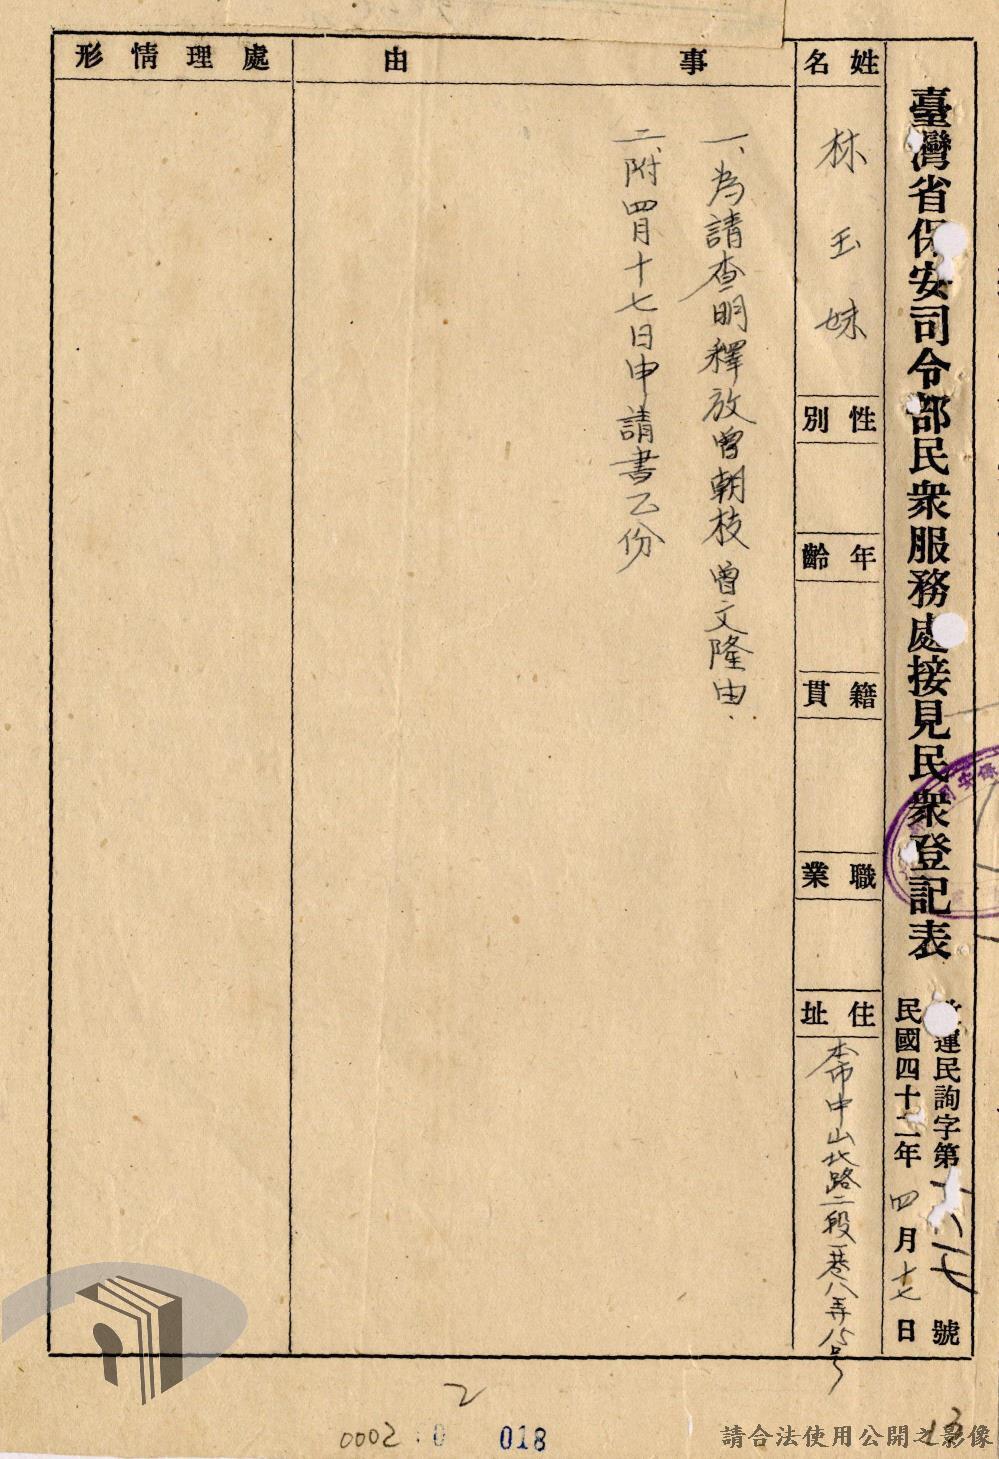 臺灣省保安司令部民眾服務處接見民眾登記表
運民詢字第
號
民國四十二年四月十七日
姓名
林玉妹
性別
年齡
籍貫
職業
住址
本市中山北路二段一巷八弄15号
事由
一、為請查明釋放曾朝枝曾文隆由.
二、附四月十七日申請書乙份
處理情形
保安司
2
0002
0
018
13
請合法使用公開之影像